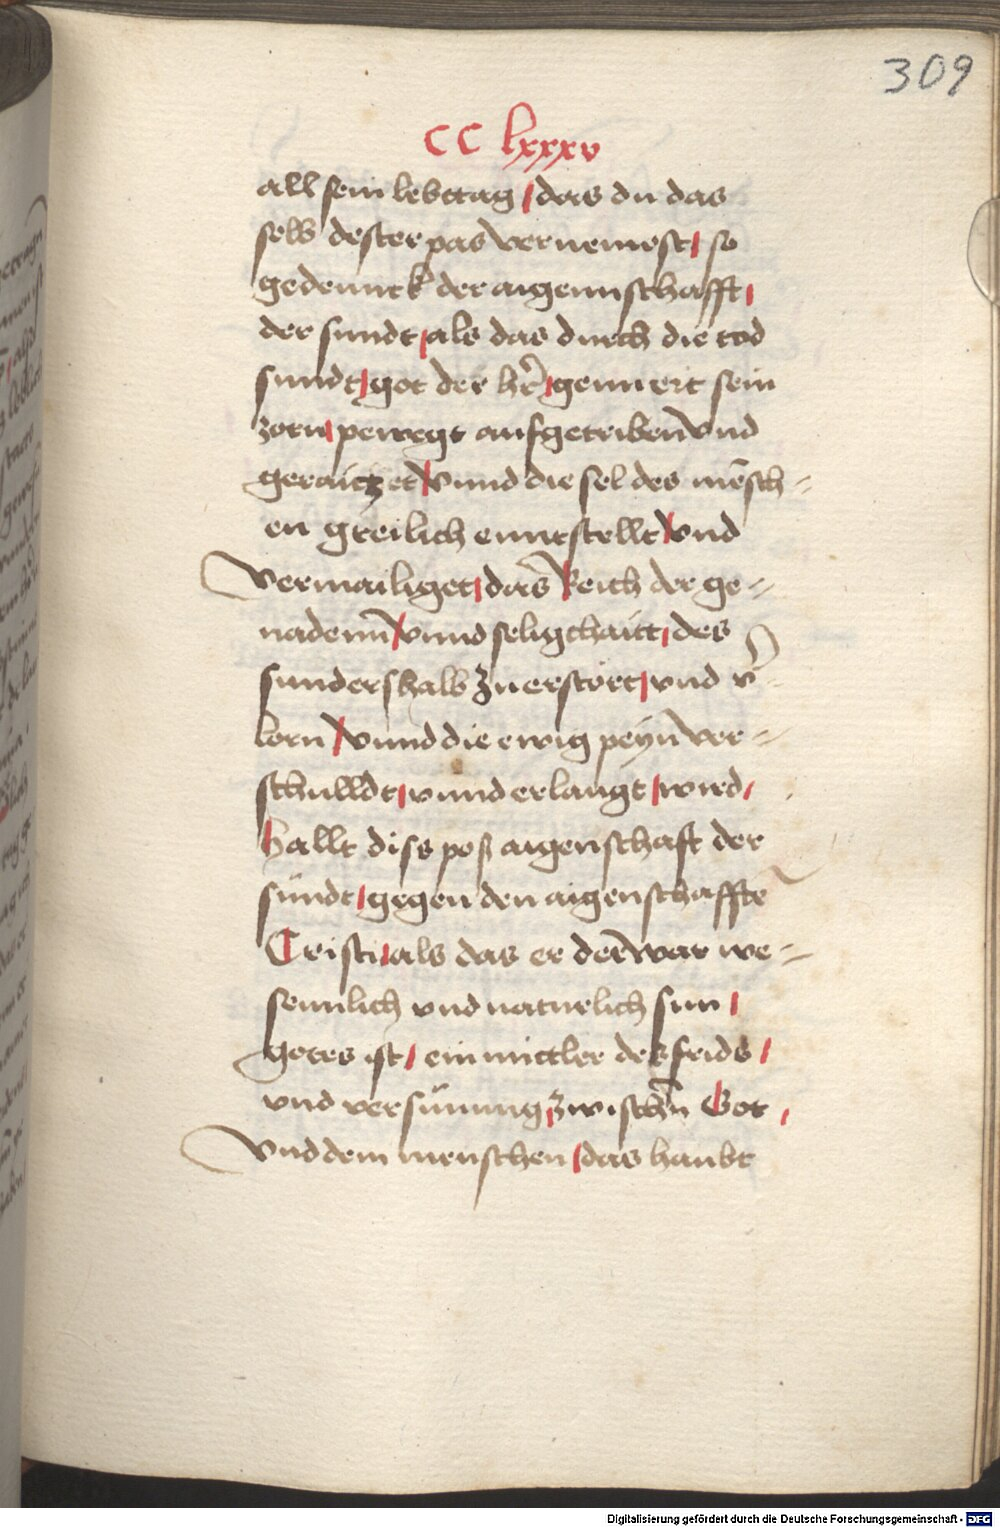 309
CC lxxxv
all sein lebttag / das du das
selb dester pas vernemest / so
gedennck der aigennschafft /
der sundt / als das durch die tod
sundt / got der hr̄ / gennert sein
zorn / pewegt aufgetriben vnd
geraitzet / vnnd die sel des mēsch=
en greilich ennstellt / vnd
vermailiget / das Reich der ge=
nadenn / vnnd seligchaitt / des
sundershalb zuerstört / vnd v̄
lorn / vnnd die ewig peyn̄ ver=
schulldt / vnnd erlangt / wird /
Hallt diss poß aigenschaft der
sündt / gegen den aigenschafftē
Cristi / als das er der war we=
sennlich vnd naturlich sun /
gotes ist / ein mittler des frids /
vnd versünung / zwischn̄ Got /
vnd dem menschen / das haubt
Digitalisierung gefördert durch die Deutsche Forschungsgemeinschaft - DFG